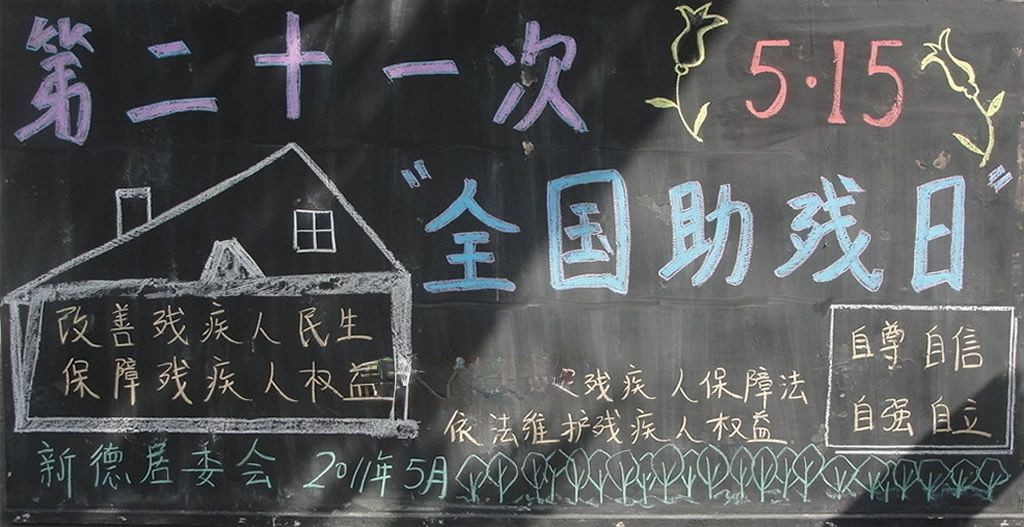 第二十一次
5·15
"全国助残日"
改善残疾人民生
保障残疾人权益
残疾人保障法
依法维护残疾人权益
自尊 自信
自强 自立
新德居委会 2011年5月